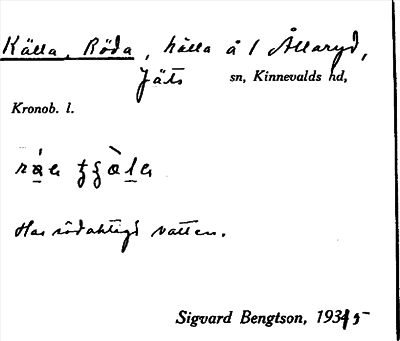 Källa, Röda, källa å / Ållaryd,
Jäts sn, Kinnevalds hd,
Kronob. l.
Har rödaktigt vatten.
Sigvard Bengtson, 1935